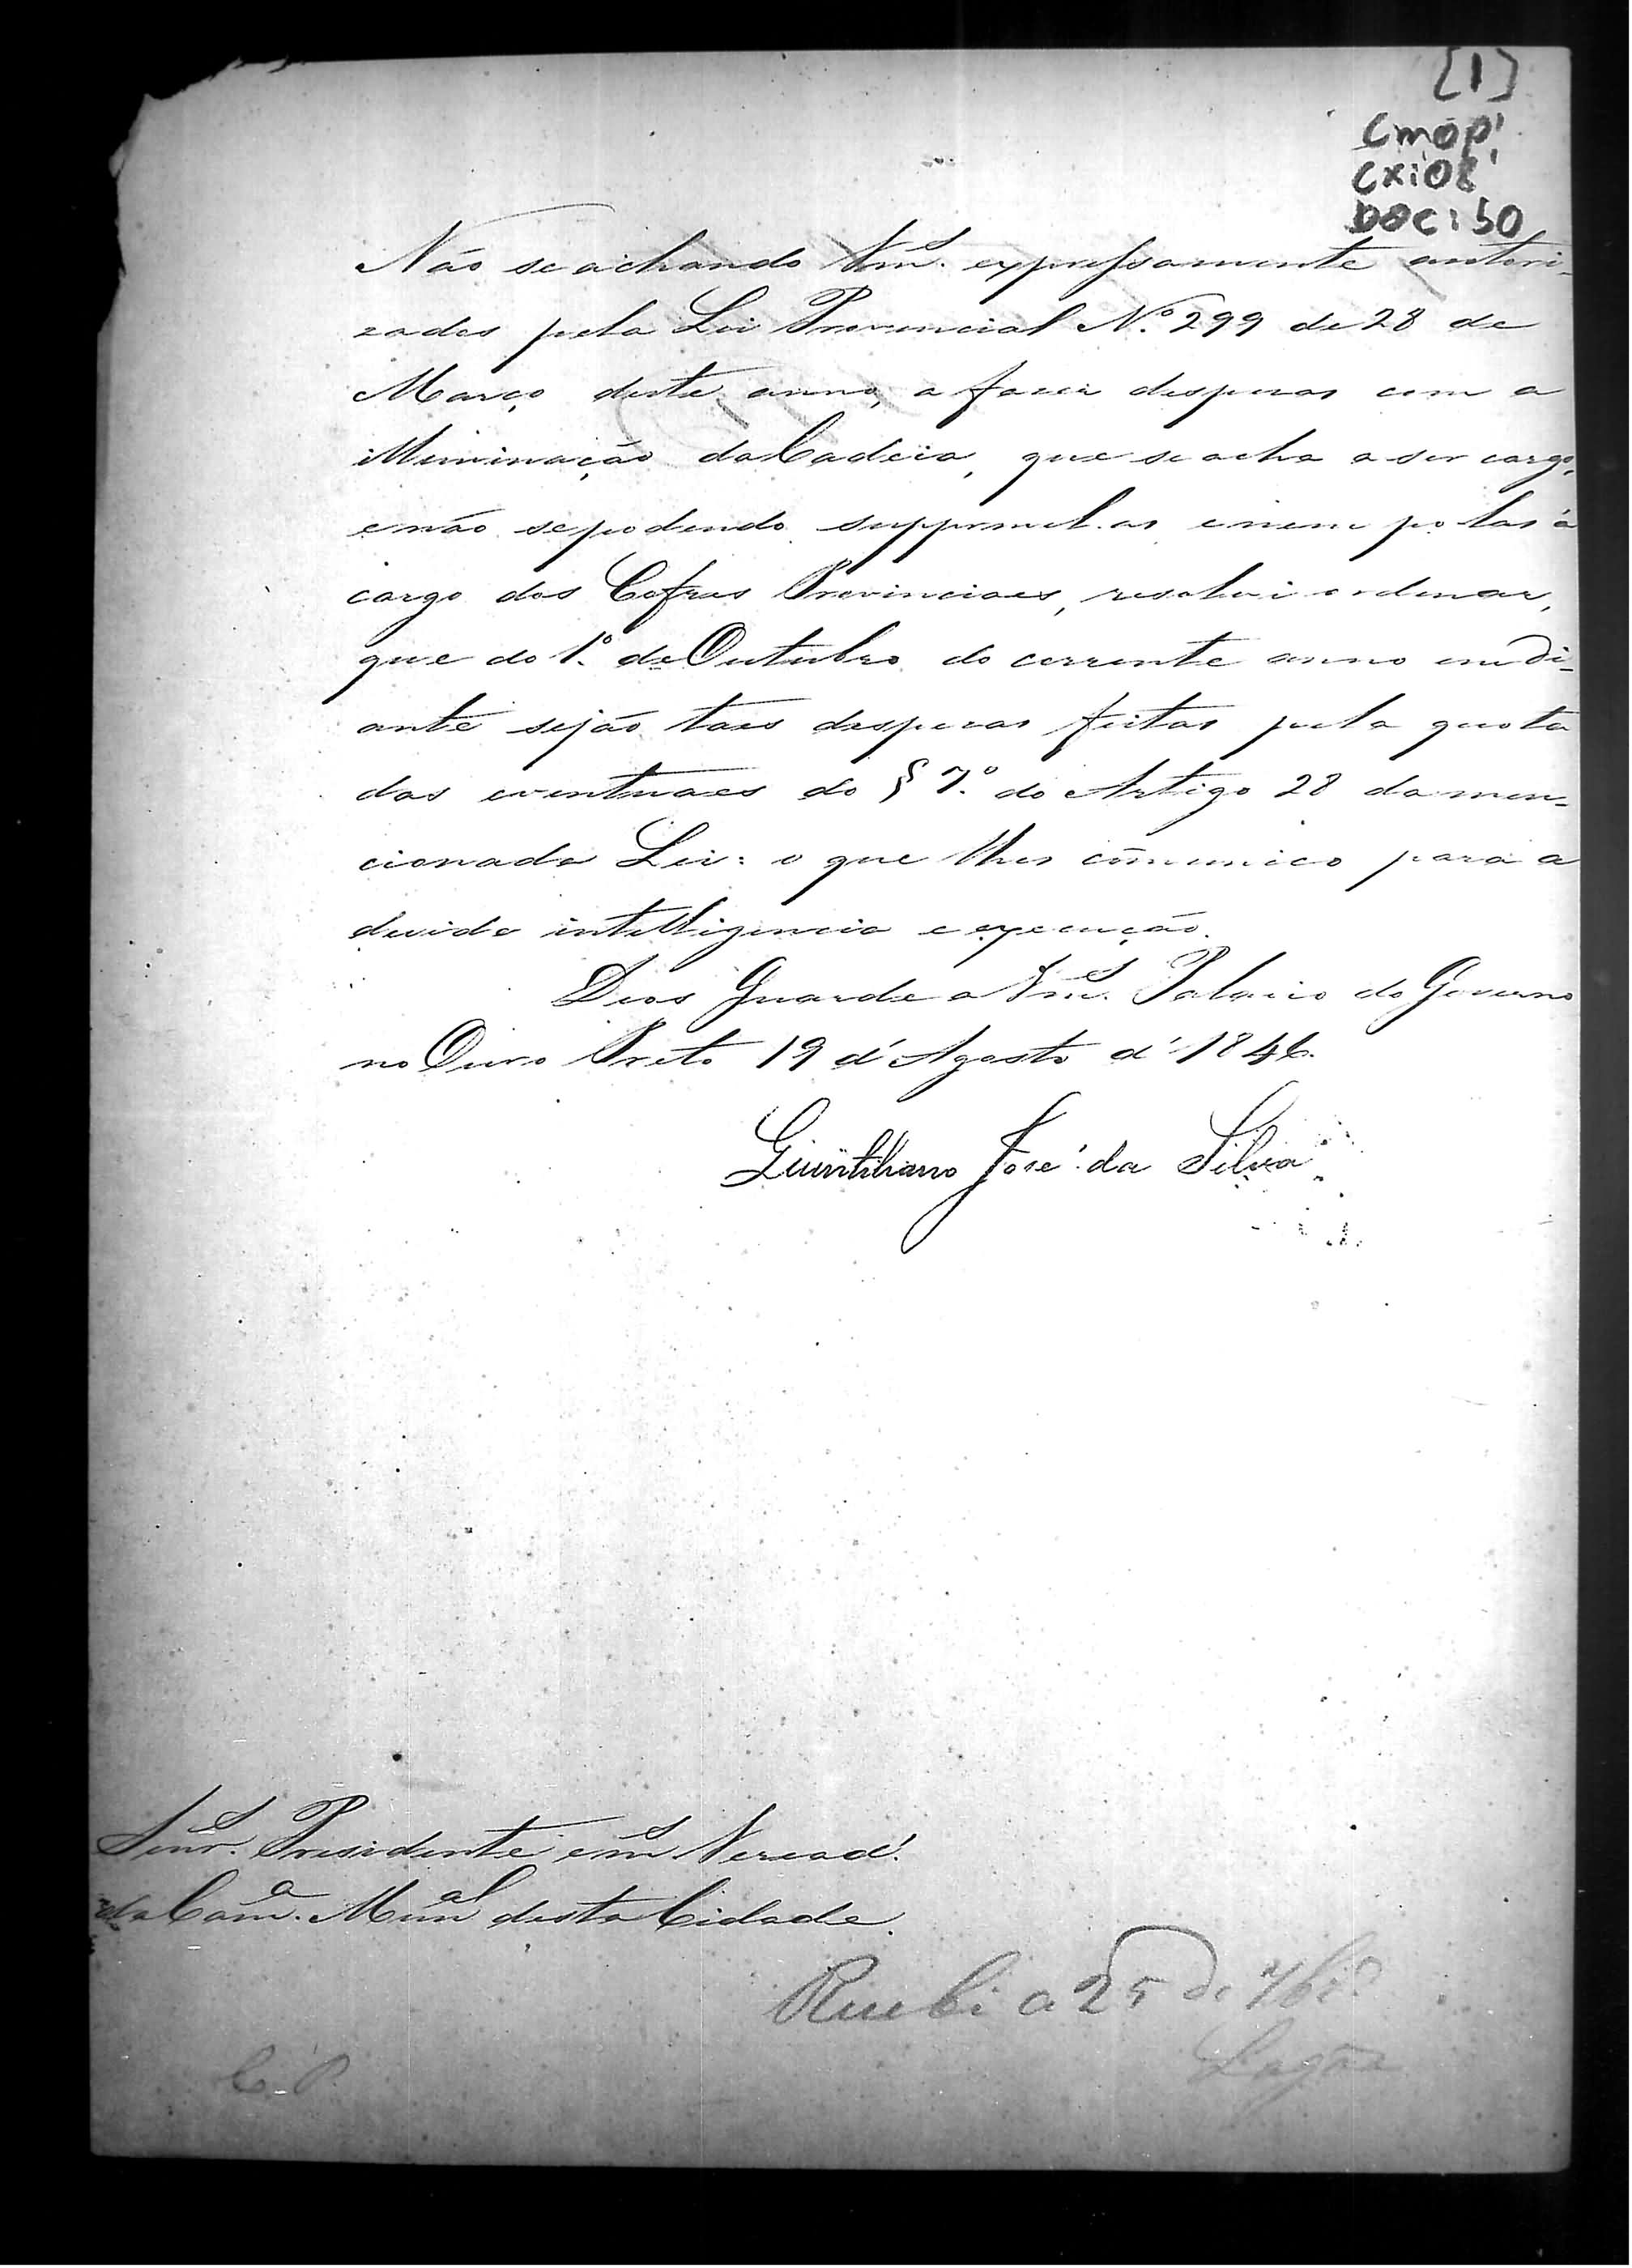 [1]
CMOP
CX:08
DOC:50
Não se achando Vm.es expressamente autori-
zados pela Lei Provincial N.º 299 de 28 de
Março deste anno, a fazer despezas com a
illuminação da Cadeia, que se acha a seu cargo,
e não se podendo supprimil-as, e nem pol-as á
cargo dos Cofres Provinciaes, resolvi ordenar,
que do 1.º de Outubro do corrente anno em di-
ante sejão taes despezas feitas pela quota
das eventuaes do § 7.º do Artigo 28 da men-
cionada Lei: o que lhes cõmunico para a
devida intelligencia e execução.
Deos Guarde a Vm.es Palacio do Governo
no Ouro Preto 19 d'Agosto d'1846.
Quintiliano José da Silva
Senr.es Presidente e m.s Veread.
da Cam.a Mun.al desta Cidade.
Recebi a 25 de 7br.º
Lagoa
C. P.